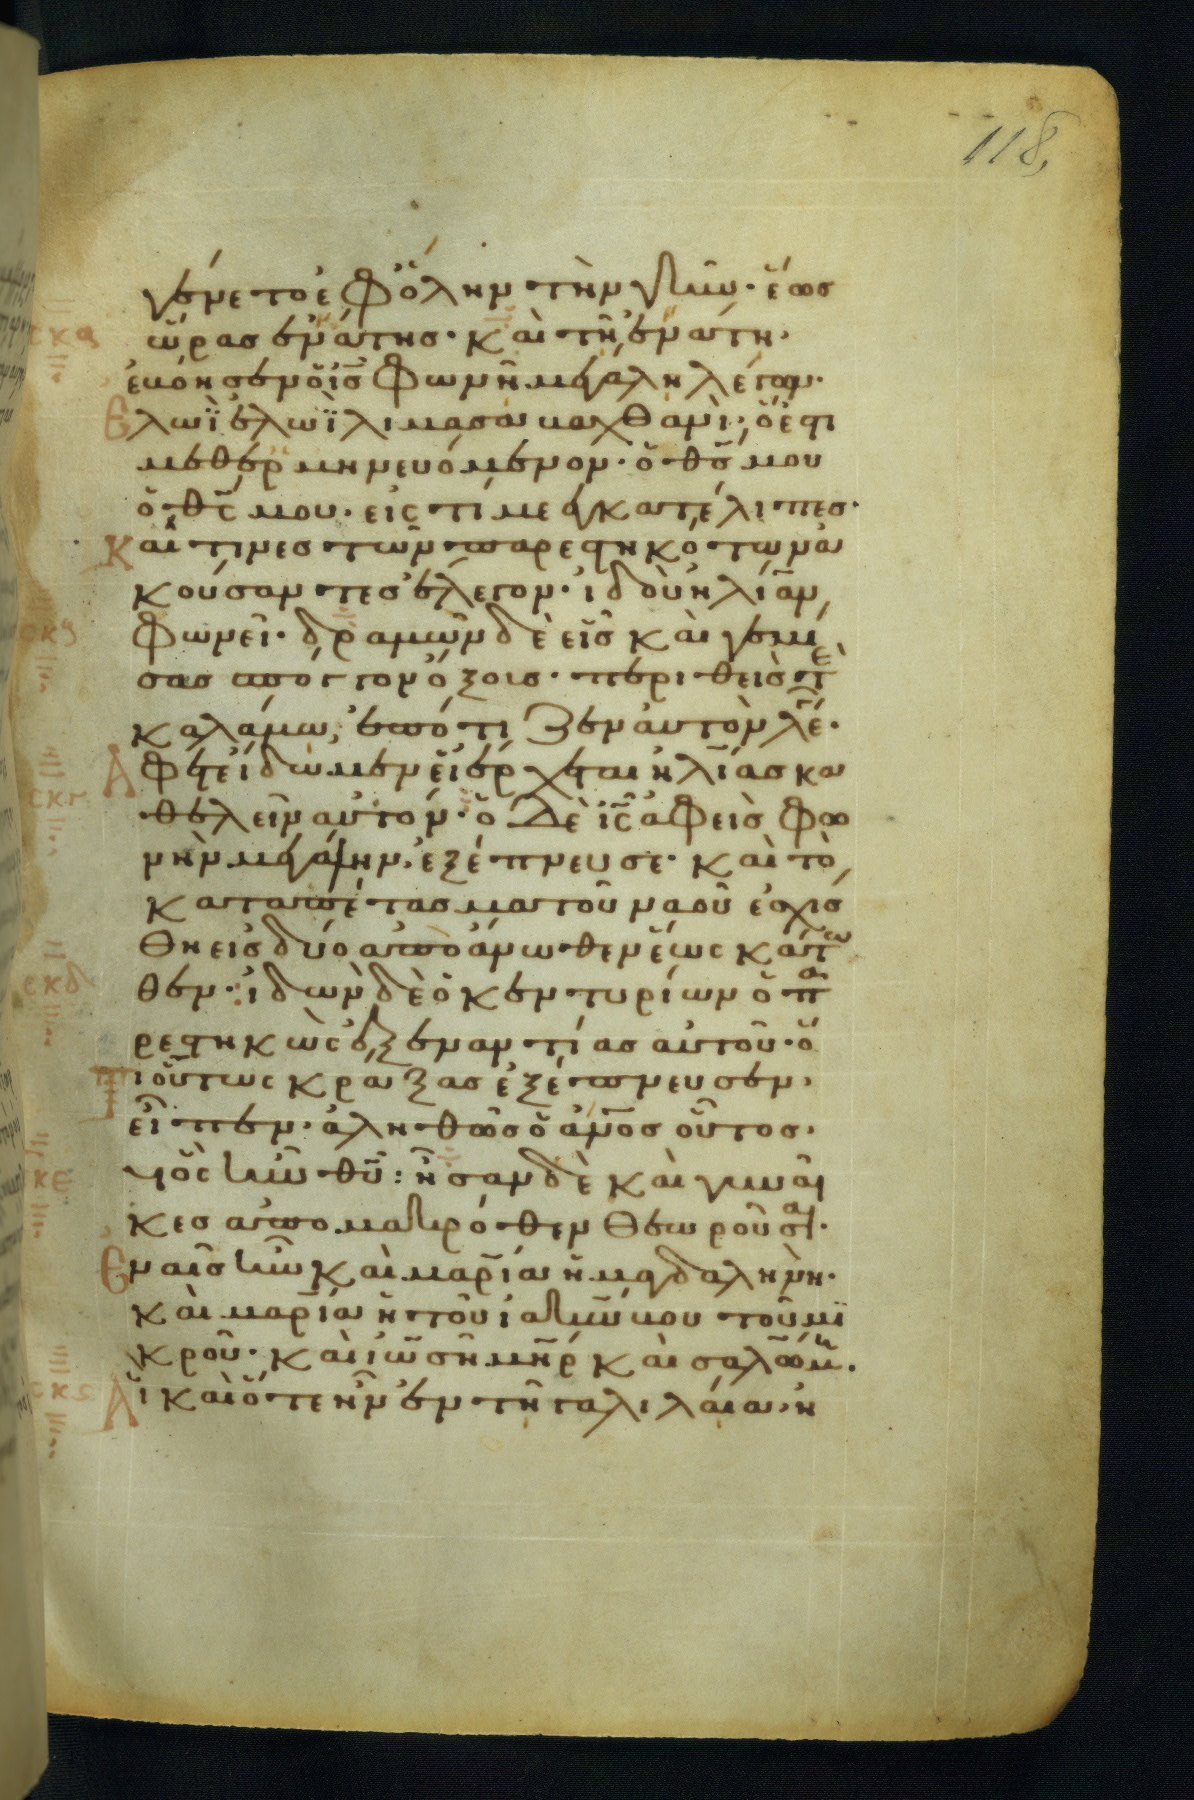 118
γένετο ἐφ ὅλην τὴν γῆν· ἕως
ὥρας ἐννάτης· καὶ τῆ ἐννάτη·
ἐβόησεν ὁ ις φωνῆ μεγάλη λέγων·
Ελωῒ ἐλωῒ λιμασαβαχθανὶ· ὅ ἐστι
μεθερμηνευόμενον· ὁ θς μου
ὁ θς μου· εἰς τί με ἐγκατέλιπες·
Καί τινες τῶν παρεστηκότων ἀ
κούσαντες ἔλεγον· ἰδοὺ ἡλίαν
φωνεῖ· δραμὼν δὲ εἷς καὶ γεμί
σας σπόγγον ὄξους· περιθεὶς τε
καλάμω, ἐπότιζεν αὐτὸν λέ·
Αφετε ἴδωμεν εἰ ἔρχεται ἡλίας κα
θελεῖν αὐτόν· ὁ δὲ ις ἀφεὶς φω
νὴν μεγάλην, ἐξέπνευσε· καὶ τὸ
καταπέτασμα τοῦ ναοῦ ἐσχίσ
θη εἰς δύο ἀπὸ ἄνωθεν ἕως κάτω
θεν· ἰδὼν δὲ ὁ κεντυρίων ὁ πα
ρεστηκὼς ἐξεναντίας αὐτοῦ· ὅ
Τι οὕτως κράξας ἐξέπνευσεν·
εἶπεν· ἀληθῶς ὁ ανος οὗτος·
υος ἦν θυ: ἦσαν δὲ καὶ γυναῖ
κες ἀπο μακρόθεν θεωροῦσαι·
Εν αἷς ἦν καὶ μαρία ἡ μαγδαληνὴ·
καὶ μαρία ἡ τοῦ ἰακώβου τοῦ μι
κροῦ· καὶ ἰωσῆ μηρ καὶ σαλώμη·
Αἳ καὶ ὅτε ἦν ἐν τῆ γαλιλαία· ἠ
σκβ
σκγ
σκδ
σκε
σκς